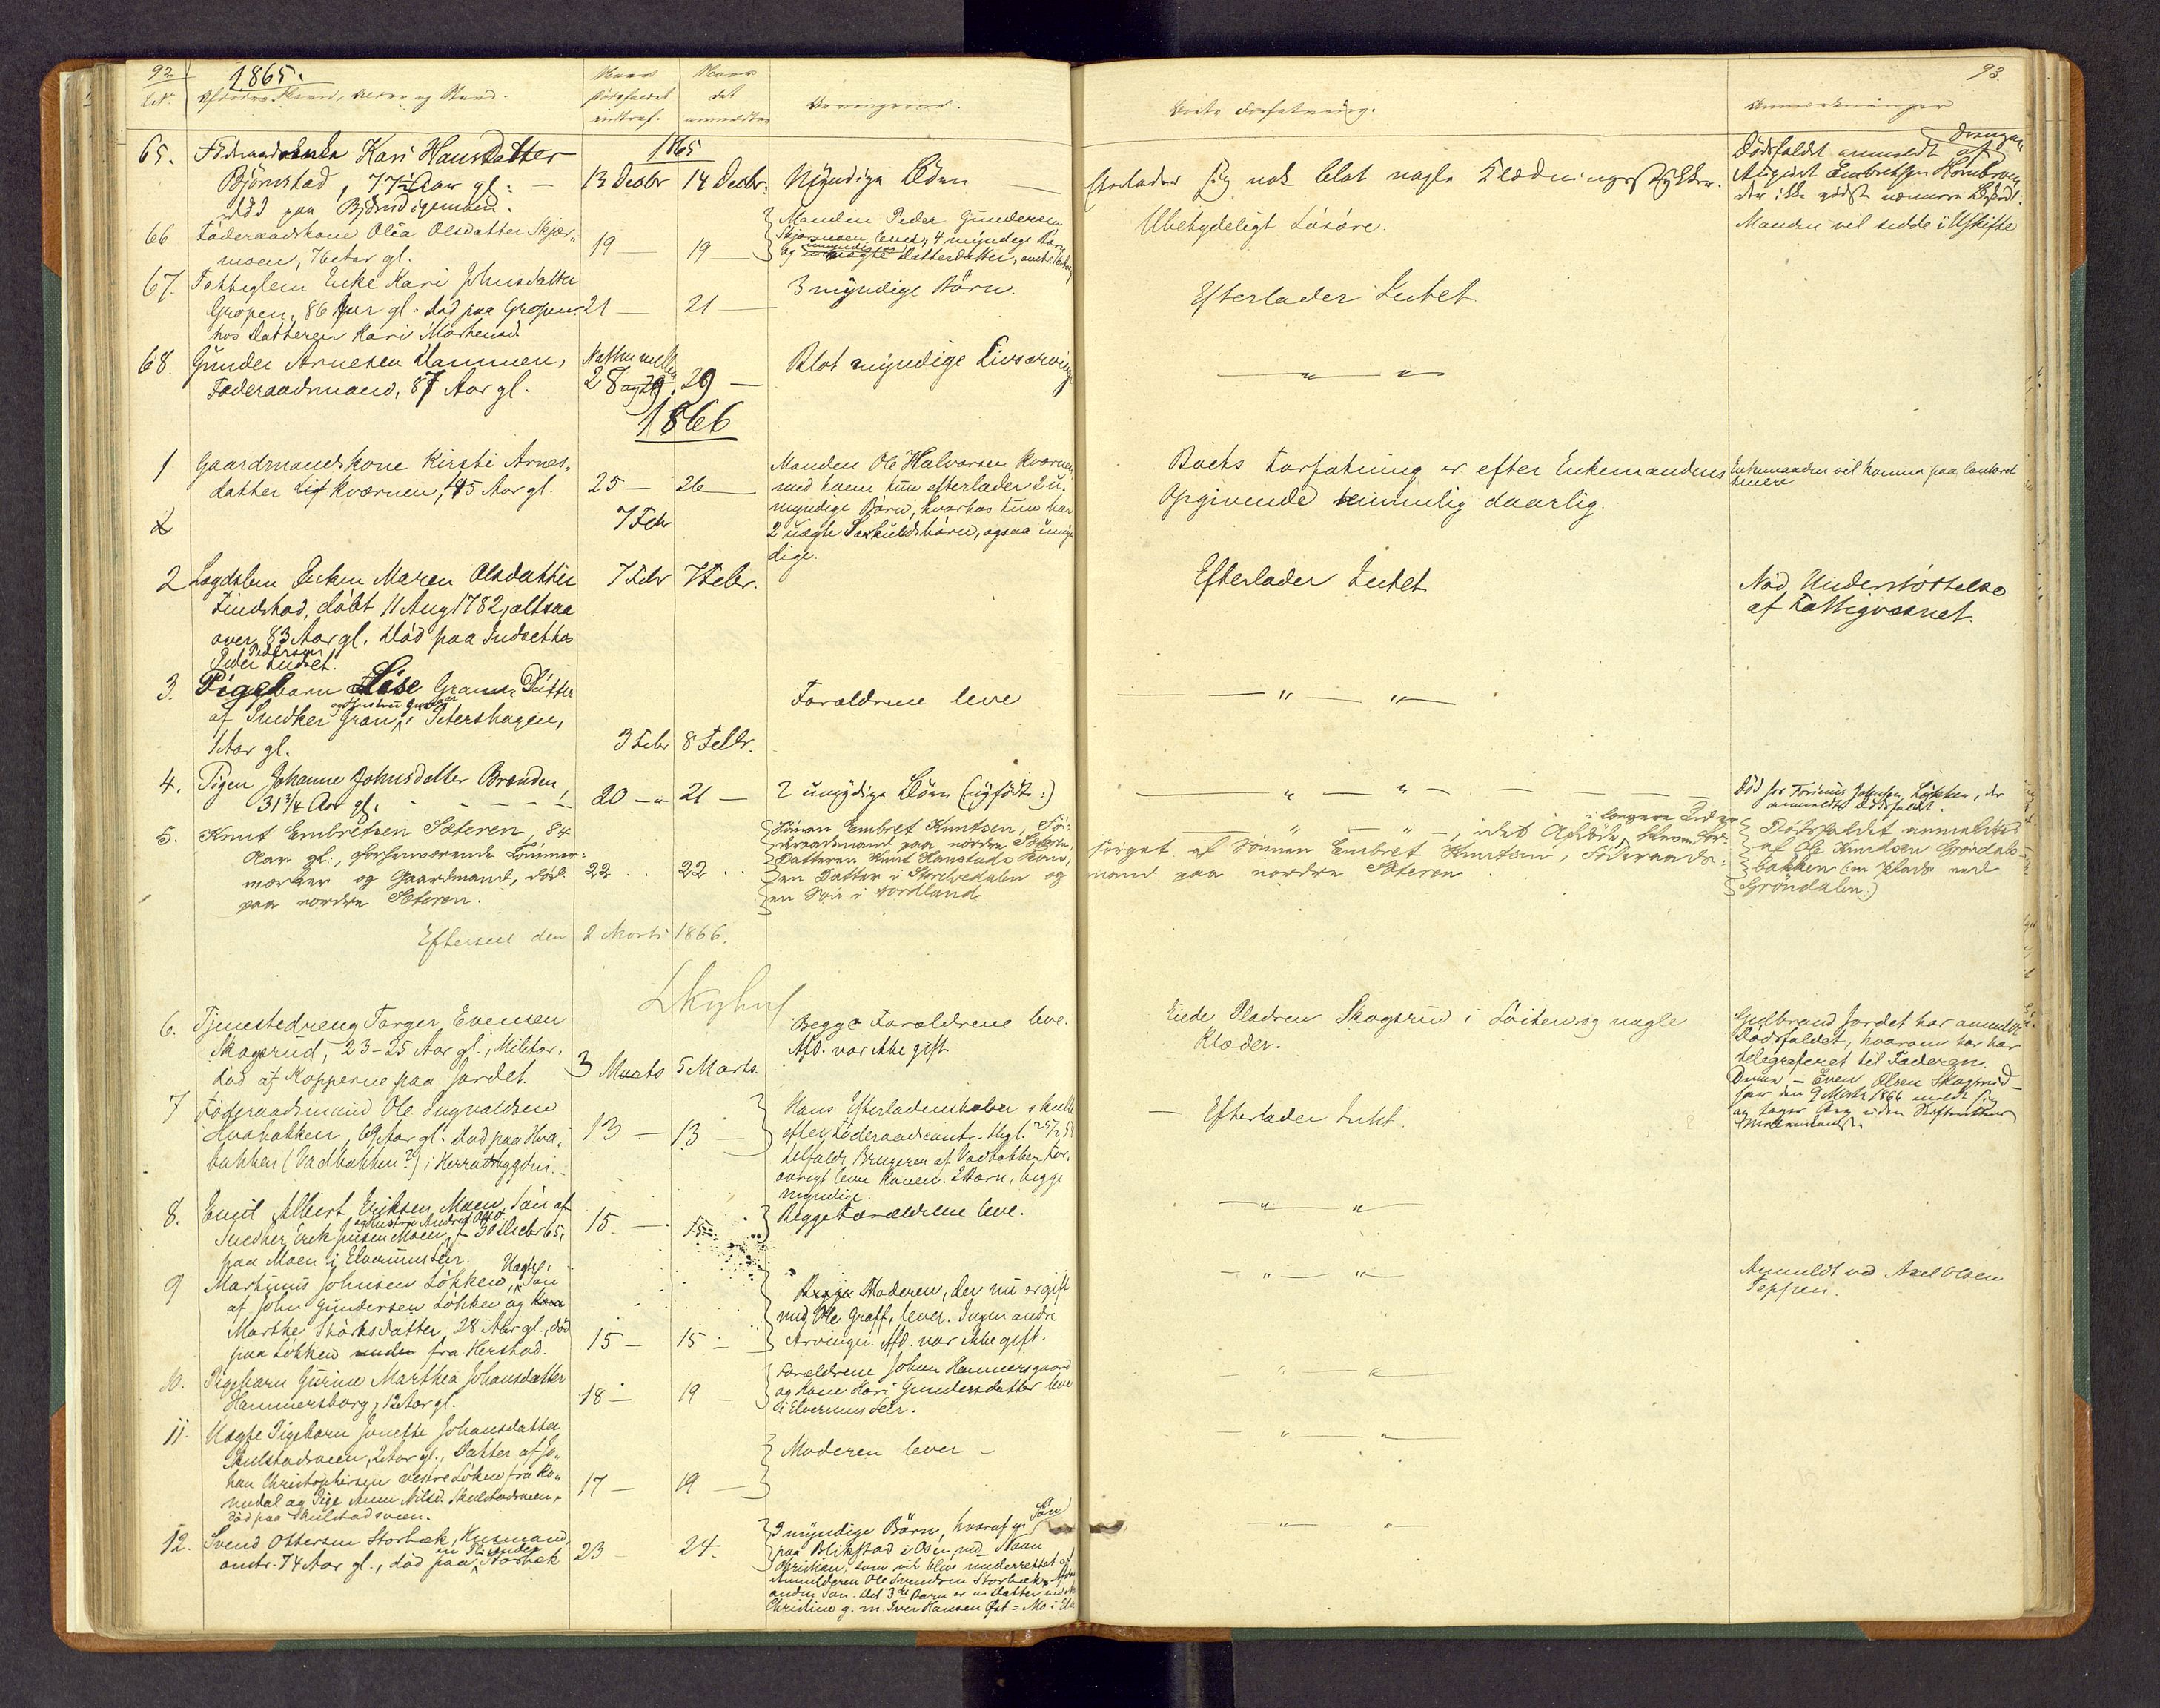 92
1865.
Afdødes Navn, Alder og Stand.
Naar Dødsfaldet indtraf.
Naar det anmeldtes
Arvingerne.
Boets Forfatning.
Anmærkninger
93.
1865
65. Föderaadsenke Kari Hansdatter
Björnstad, 77½ Aar gl:
død paa
13 Decbr
14 Decbr.
Myndige Börn
Efterlader sig nok blot nogle Klædningsstykker.
Dödsfaldet anmeldt af
August Embretsen
66 Föderaadskone Olia Olsdatter Skjær-
moen, 76 Aar gl.
19 —
19 —
Manden Peder Gundersen
Skjærmoen lever, 4 myndige Börn
og uægte Datterdatter,
Ubetydeligt Lösöre.
Manden vil sidde i Uskifte
67. Fattiglem Enke Kari Johnsdatter
Gropen, 86 Aar gl. död paa Gropen
hos Datteren Kari Mortensd.
21 —
21 —
3 myndige Börn.
Efterlader Intet
68. Gunder Arnesen Dammen,
Föderaadsmand, 87 Aar gl.
Natten mellem
28 og 29
29 —
Blot myndige Livsarvinger
— " — " —
1866
1 Gaardmandskone Kirsti Arnes-
datter Kværnen, 45 Aar gl.
25 —
26 —
Manden Ole Halvorsen Kværnen
med hvem hun efterlader 2 u-
myndige Börn, hvorhos hun har
2 uægte Særkuldsbörn, ogsaa umyn-
dige.
Boets Forfatning er efter Enkemandens
Opgivende temmelig daarlig.
Enkemanden vil komme paa Contoret
senere
2
7 Febr
2 Lægdslem Enken Maren Olsdatter
Findstad, döbt 11 Aug 1782, altsaa
over 83 Aar gl. Död paa Indset hos
Peder Pedersen Indset.
7 Febr
7 Febr.
Efterlader Intet
Nöd Understöttelse
af Fattigvæsnet.
3. Pigebarn Lise Gran, Datter
af Snedker Gran, i Petershagen,
1 Aar gl.
3 Febr
8 Febr.
Forældrene leve
— " — " —
4. Pigen Johanne Johnsdatter Brænden,
31 3/4 Aar gl.
20 — "
21 —
2 umyndige Börn (nyfödt:)
— " — " —
Död hos Johnsen Løkken, der
anmeldte Dödsfaldet.
5. Knut Embretsen Sæteren, 84
Aar gl., forhenværende Tömmer-
mærker og Gaardmand, död
paa nordre Sæteren.
22 . .
22 . .
Sönnen Embret Knutsen, Fö-
deraadsmand paa nordre Sæteren,
Datteren Knut Kone,
en Datter i Storelvedalen og
en Sön i Nordland
— " — " —, idet Afdöde i længere Tid er for-
sörget af Sönnen Embret Knutsen, Föderaads-
mand paa nordre Sæteren
Dödsfaldet anmeldtes
af Ole Knudsen Gröndals-
bakken (en Plads ved
Gröndalen)
Efterseet den 2 Marts 1866.
6. Tjenestedreng Torger Evensen
Skogsrud, 23-25 Aar gl., Militær,
död af Kopperne paa Jordet.
3 Marts
5 Marts.
Begge Forældrene leve.
Afd. var ikke gift
Eiede Pladsen Skogsrud i Löiten og nogle
Klæder.
Gulbrand Jordet har anmeldt
Dödsfaldet, hvorom han har
telegraferet til Faderen.
Denne — Even Olsen Skogsrud —
har den 9 Marts 1866 meldt sig
7 Föderaadsmand Ole Ingvaldsen
Hvabakken, 69 Aar gl. Död paa Hva-
bakken (Vadbakken?) i Herradsbygden.
13 —
13 —
Hans Efterladenskaber skulle
efter Föderaadscontr. thgl.
tilfalde Brugeren af Vadbakken. For-
övrigt lever Konen. 2 Börn, begge
myndige.
— Efterlader Intet.
8. Emil Albert Eriksen Moen, Sön af
Snedker Erik Jensen Moen, f. 30 Decbr 65,
paa Moen i Elverumseter.
15 —
15 —
Begge Forældrene leve.
— " — " —
9 Martinus Johnsen Lökken, Uægte Sön
af John Gundersen Lökken og
Marthe Störksdatter, 28 Aar gl., död
paa Lökken fra Herstad.
15 —
15 —
Moderen, der nu er gift
med Ole Graff, lever. Ingen andre
Arvinger. Afd. var ikke gift.
— " — " —
Anmeldt ved Axel Olsen
Teppen.
10. Pigebarn Gurine Marthea Johansdatter
Hammersborg, 12 Aar gl.
18 —
19 —
Forældrene Johan Hammersgaard
og Kone Kari Gundersdatter leve
i Elverumseter.
— " — " —
11. Uægte Pigebarn Jonette Johansdatter
Skulstadsveen, 2 Aar gl., Datter af Jo-
han Christophersen vestre Löken fra Ro-
medal og Pige Anne Nilsd. Skulstadsveen,
död paa Skulstadsveen.
17 —
19 —
Moderen lever —
— " — " —
12. Svend Ottersen Storbæk, Husmand,
omtr. 74 Aar gl., död paa Storbæk
23 —
24.
3 myndige Börn, hvoraf en Sön
paa Blikstad i Osen, ved Navn
Christian, som vil blive underrettet af
Anmelderen Ole Svendsen Storbæk,
anden Sön. Det 3die Barn er en Datter ved N.
Christine g. m. Iver Hansen Öst-Mo i
— " — " —